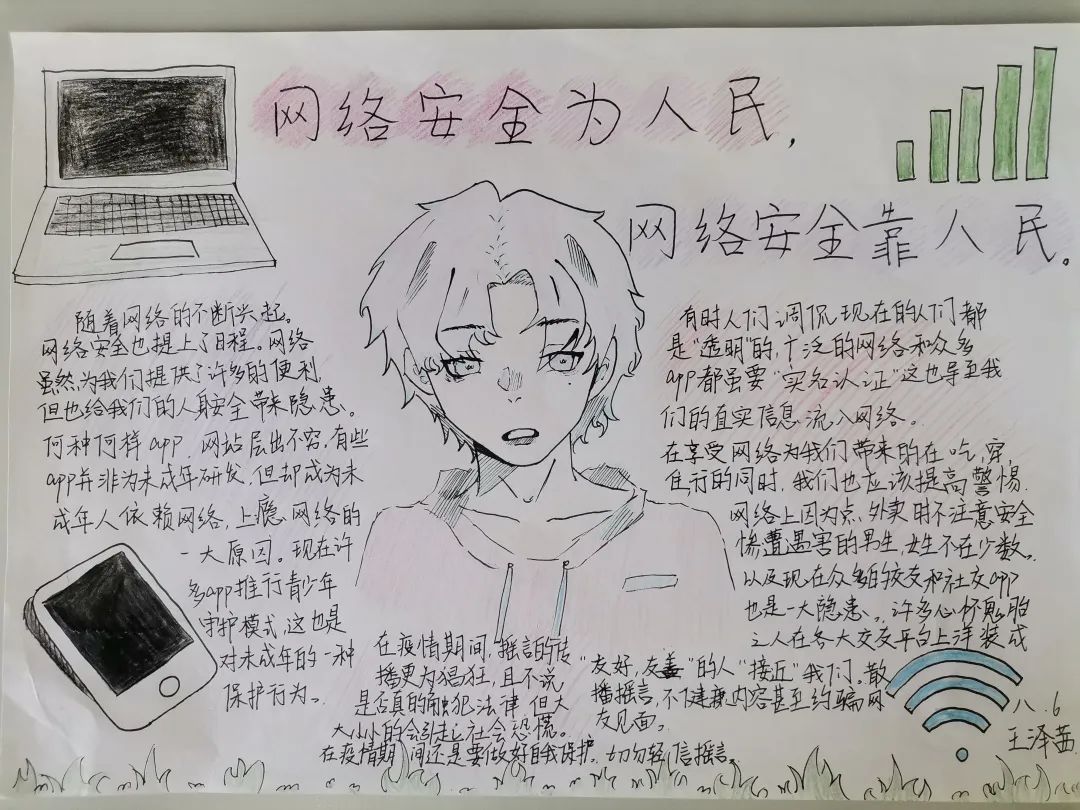 网络安全为人民，
网络安全靠人民。
随着网络的不断兴起。
网络安全也提上了日程。网络
虽然，为我们提供了许多的便利，
但也给我们的人身安全带来隐患。
何种何样app，网站层出不穷，有些
app并非为未成年研发，但却成为未
成年人依赖网络，上瘾网络的
一大原因。现在许
多app推行青少年
守护模式，这也是
对未成年的一种
保护行为。
在疫情期间，摇言的传
播更为猖狂，且不说
是否真的触犯法律，但大
大小小的会引起社会恐慌。
在疫情期间还是要做好自我保护，切勿轻信摇言。
有时人们调侃现在的人们都
是"透明"的，广泛的网络和众多
app都虽要"实名认证"这也导至我
们的真实信息流入网络。
在享受网络为我们带来的在吃，穿，
住，行的同时，我们也应该提高警惕，
网络上因为点外卖时不注意安全
惨遭遇害的男生，女生不在少数。
以及现在众多的交友和社交app
也是一大隐患。许多心怀鬼胎
之人在各大交友平台上洋装成
"友好，友善"的人"接近"我们，散
播摇言，不健康内容甚至约骗网
友见面。
八.6
王泽茜